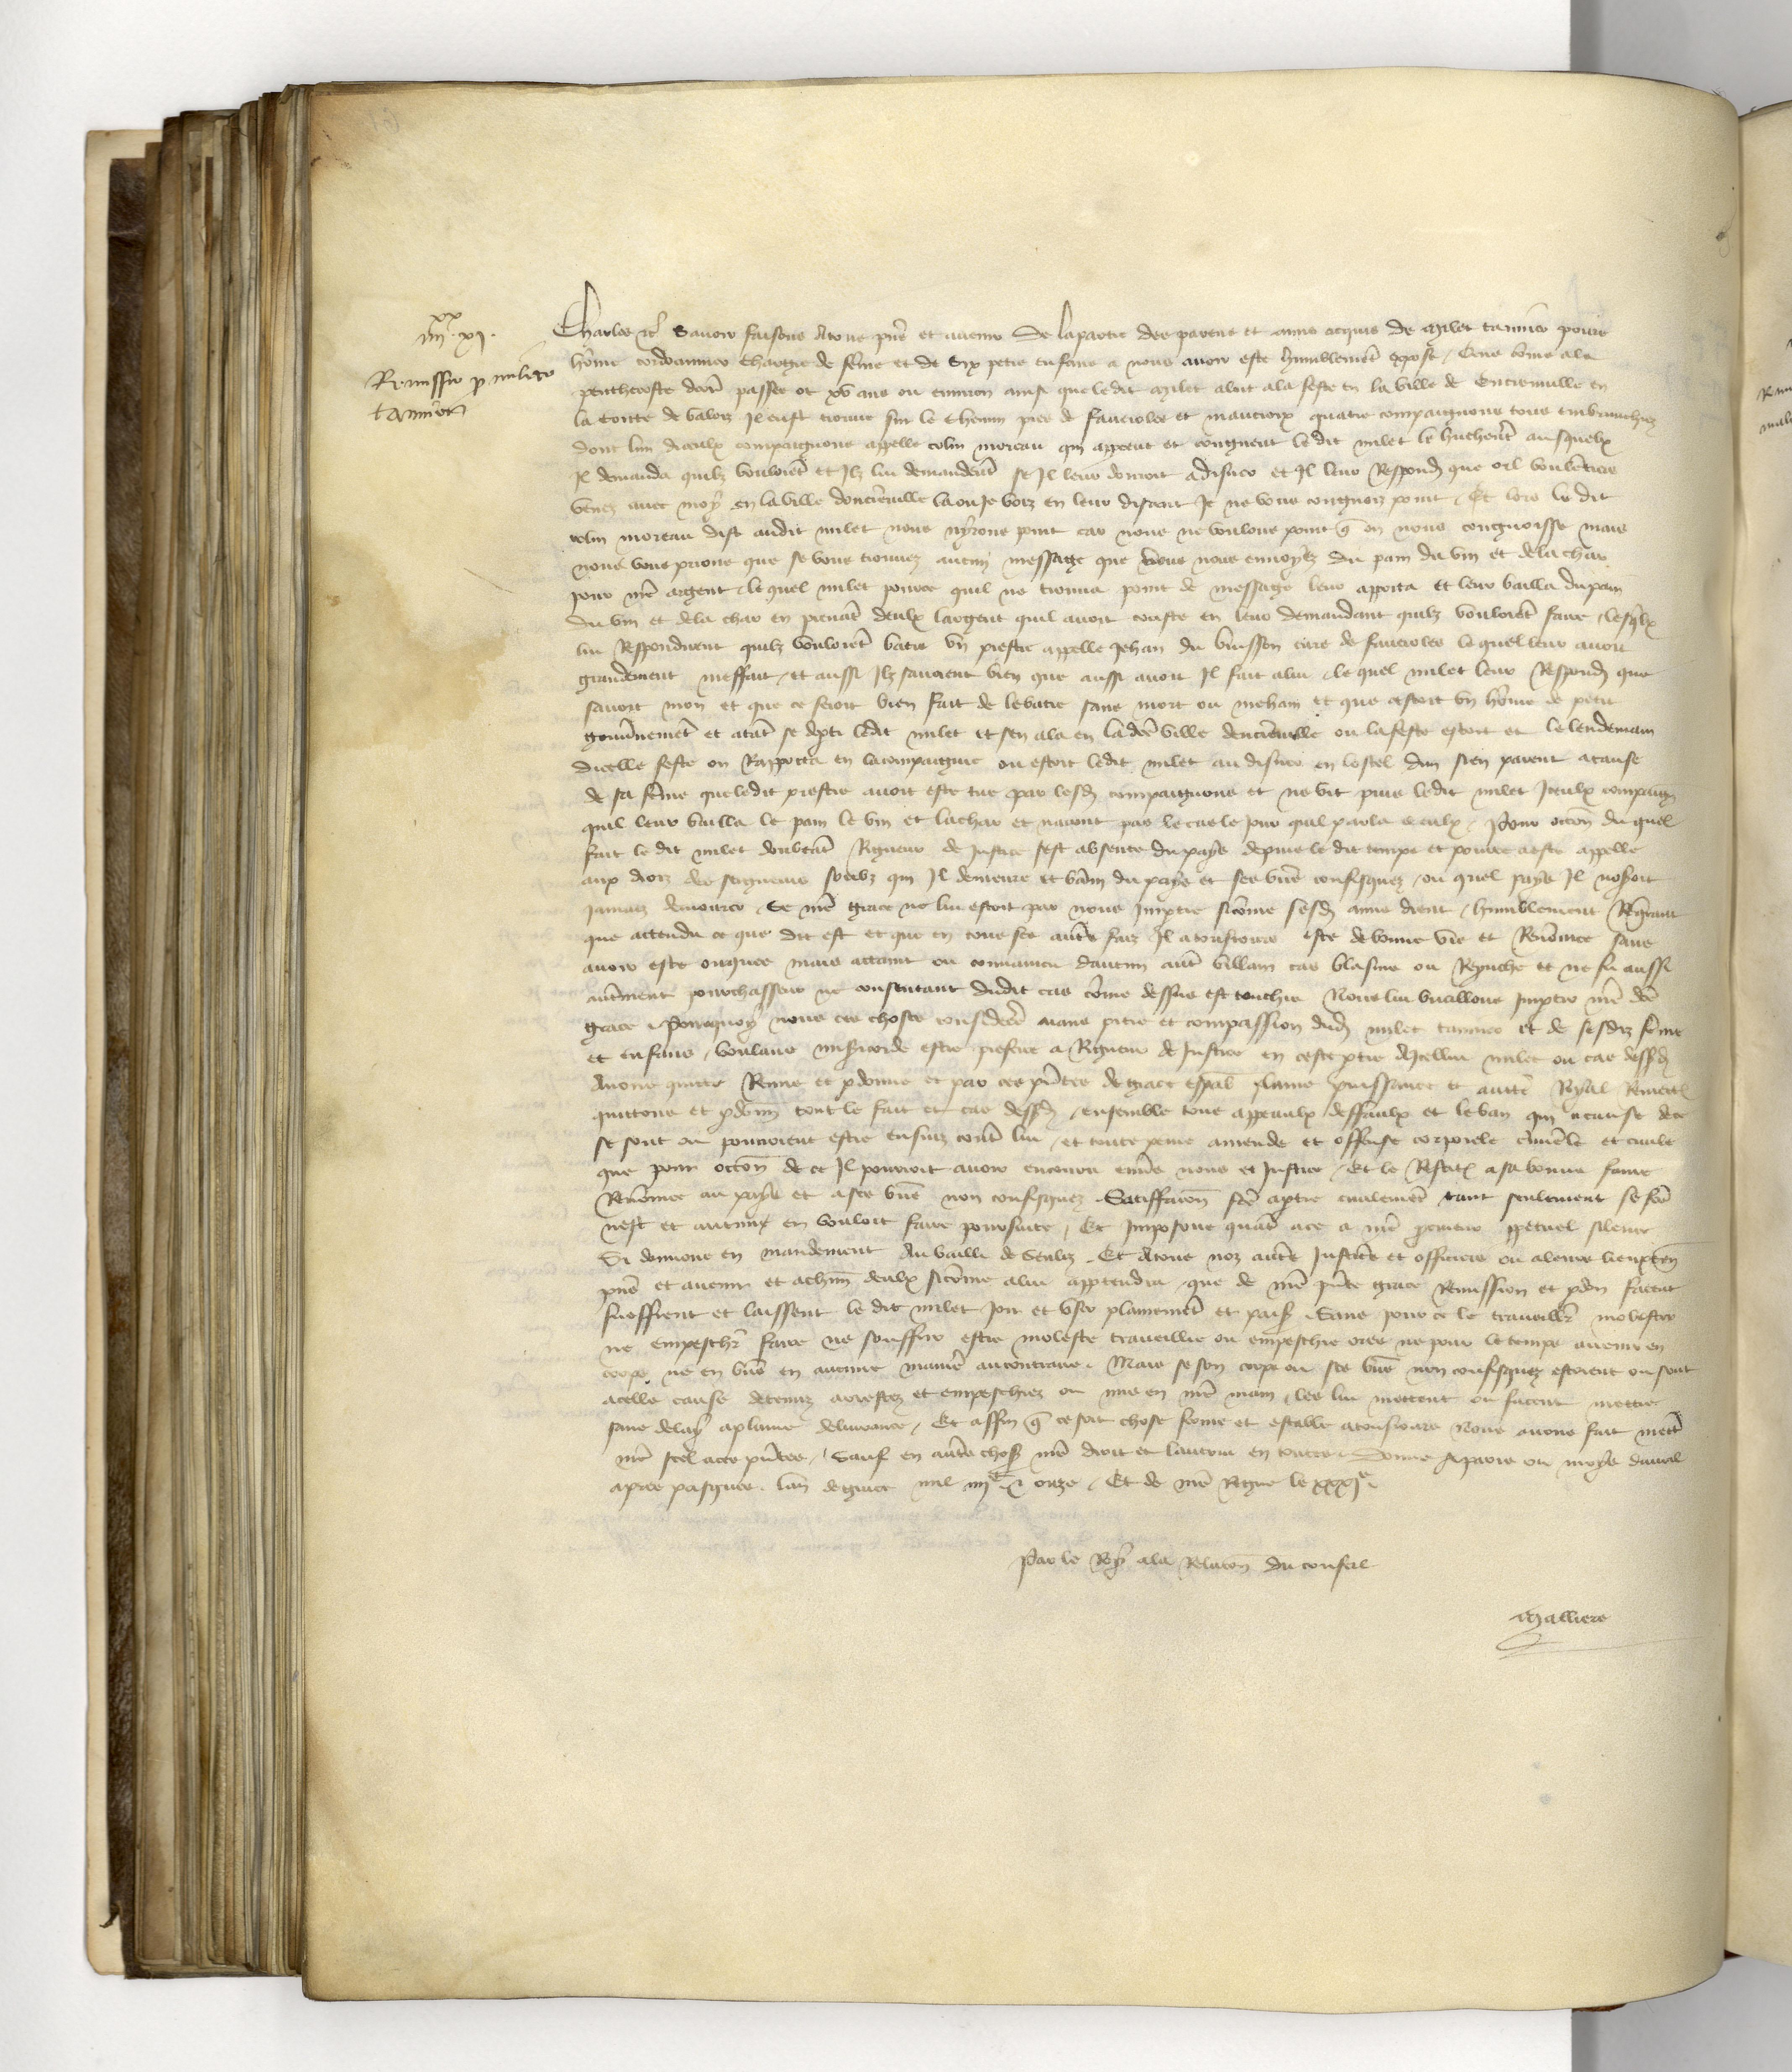 iiii xx xi.
Remissio p milet
tannier
Charles etc Savoir faisons A tous pns et avenir De la partie des parens et amis acquis de Milet tannier povre
home cordouannier chargie de feme et de Six petis enfans a nous avoir este humblemēt expose / Que cōme a la
penthecoste passee ot xv ans ou environ ainsi que ledit Milet aloit a la feste en la ville de en
la Conte de Valoiz Il eust trouve sur le chemin pres de faverolles et quatre compaignons tous embrunchiez
dont lun diceulx compaignons appelle colin moreau qui apperçut et congneut le dit milet le ausquelx
Il demanda quilz vouloiēt et Ilz lui demanderēt se Il leur donroit a disner et Il leur Respondi que oil voulētiers
venez avec moy en la ville la ou Je vois en leur disant Je ne vous congnois point / Et lors le dit
colin moreau dist audit milet nous nyrons point car nous ne voulons point q on nous congnoisse mais
nous vous prions que se vous trouvez aucun message que vous nous envoyez du pain du vin et de la char
pour nre argent / le quel milet pource quil ne trouva point de message leur apporta et leur bailla du pain
du vin et de la char en prenāt deulx largent quil avoit couste en leur demandant quilz vouloiēt faire / lesqlx
lui Respondirent quilz vouloiēt batre un prestre appelle Jehan du buisson cure de faverolles le quel leur avoit
grandement meffait / et aussi Ilz savoient bien que aussi avoit Il fait a lui / le quel milet leur Respondi que
savoit mon et que ce seroit bien fait de le batre sans mort ou mehain et que cestoit un hōme de petit
gouvnemēt et atāt se dpti ledit milet et sen ala en la dce ville ou la feste estoit et le lendemain
dicelle feste on Rapporta en la compaignie ou estoit ledit milet au disner en lostel dun sien parent a cause
de sa feme que ledit prestre avoit este tue par lesd compaignons et ne vit puis ledit milet Iceulx compaing
quil leur bailla le pain le vin et la char et navoit pas le jour quil parla a eulx / Pour occon du quel
fait le dit milet doubtāt Rigueur de Justice sest absente du pays depuis le dit temps et pource a este appelle
aux drois des seigneurs soubz qui Il demeure et bany du pays et ses biēs confisquez / ou quel pays Il noseroit
jamaiz demourer / Se nre grace ne lui estoit par nous Imptie sicōme sesd amis dient / humblement Reqrant
que attendu ce que dit est et que en tous ses autēs faiz Il a tousjours este de bonne vie et Renōmee sans
avoir este onques mais attaint ou convaincu daucun autre villain cas blasme ou Reprouche et ne fu aussi
autrement pourchasseur ne consentant dudit cas cōme dessus est touchie Nous lui vueillons Imptir nre dce
grace / Pourquoy nous ces choses considerēs aians pitie et compassion dud milet tannier et de sesdiz feme
et enfans / voulans misericorde estre preferee a Rigueur de Justice en ceste ptie A Icellui milet ou cas dessusd
Avons quitte Remis et pdonne et par ces pntes de grace espal plaine puissance et auctē Royal Remectōs
quittons et pdonnōs tout le fait et cas dessusd / ensemble tous appeaulx deffaulx et le ban qui a cause de ce
se sont ou pourroient estre ensuiz contre lui / et toute peine amende et offense corporele crimīele et civile
que pour occon de ce Il pourroit avoir encouru envs nous et Justice / Et le Restituōs a sa bonne fame
Renōmee au pays et a ses biēs non confisquez Satiffacon fce a ptie civilemēt tant seulement se fce
nest et aucunx en vouloit faire poursuite / Et Imposons quāt a ce a nre procureur ppetuel silence
Si donnons en mandement Au bailli de Senliz Et A tous noz autēs Justicēs et officiers ou a leurs lieuxten
pns et avenir et a chūn deulx sicōme a lui apptendra que de nre pnte grace Remission et pdon facent
sueffrent et laissent le dit milet Joir et user plainemēt et paisib Sans pour ce le travaillier molester
ne empeschr faire ne souffrir estre moleste travaillie ou empeschie ores ne pour le temps avenir en
corps ne en biēs en aucune manīe au contraire Mais se son corps ou ses biēs non confisquez estoient ou sont
a celle cause detenuz arrestez et empeschiez ou mis en nre main / les lui mettent ou facent mettre
sans delay a plaine delivrance / Et affin q ce soit chose ferme et estable a tousjours Nous avons fait mett
nre Scel a ces pntes / Sauf en autēs choses nre droit et lautrui en toutes Donne A paris ou moys davril
apres pasques lan de grace mil iiiic et onze / Et de nre Regne le xxxje
Par le Roy a la Relacon du conseil
Mallieres